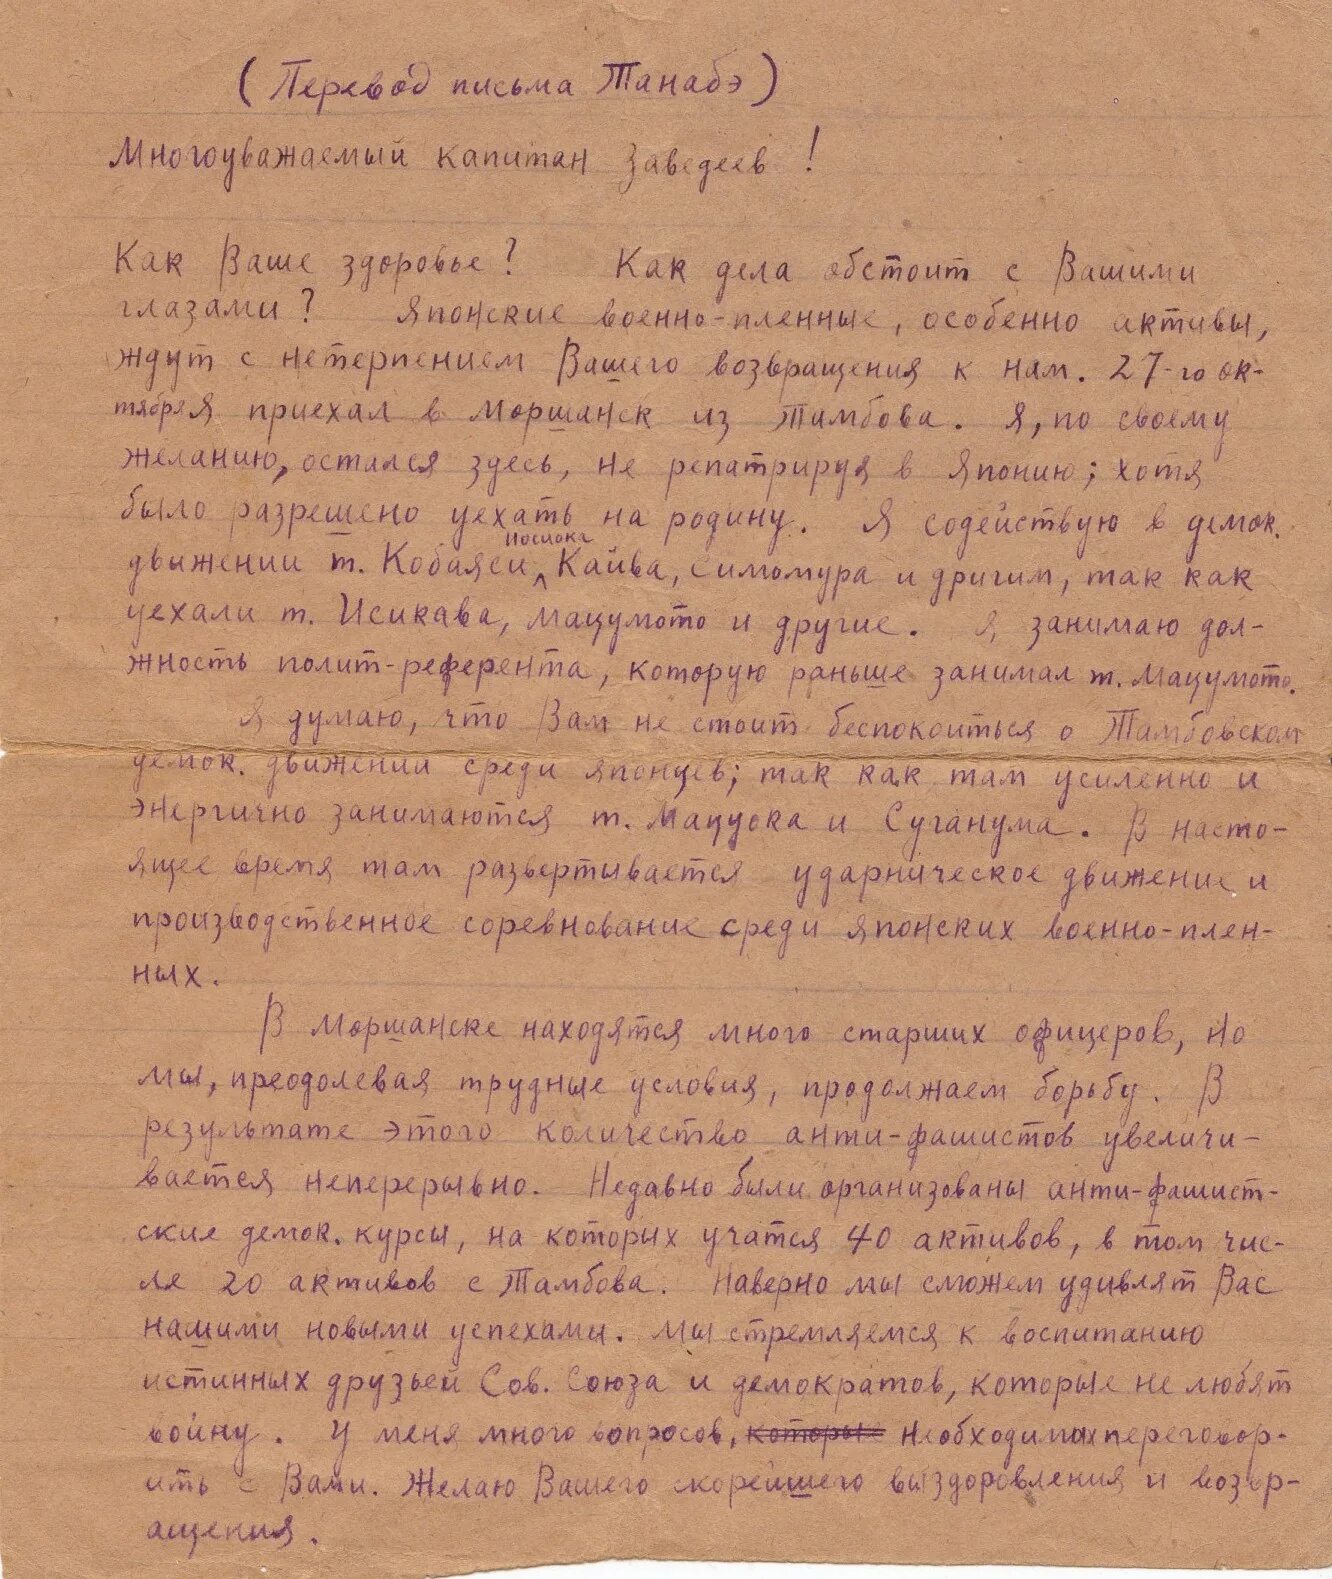 (Перевод письма Танабэ)
Многоуважаемый капитан Заведеев!
Как Ваше здоровье? Как дела обстоит с Вашими
глазами? Японские военно-пленные, особенно активы,
ждут с нетерпением Вашего возвращения к нам. 27-го ок-
тября приехал в Моршанск из Тамбова. Я, по своему
желанию, остался здесь, не репатрируя в Японию; хотя
было разрешено уехать на родину. Я содействую в демок.
движении т. Кобаяси, Иосиока Кайва, Симомура и другим, так как
уехали т. Исикава, Мацумото и другие. Я занимаю дол-
жность полит-референта, которую раньше занимал т. Мацумото.
Я думаю, что Вам не стоит беспокоиться о Тамбовском
демок. движении среди японцев; так как там усиленно и
энергично занимаются т. Мацуока и Суганума. В насто-
ящее время там развертывается ударническое движение и
производственное соревнование среди японских военно-плен-
ных.
В Моршанске находятся много старших офицеров, но
мы, преодолевая трудные условия, продолжаем борьбу. В
результате этого количество анти-фашистов увеличи-
вается неперерывно. Недавно были организованы анти-фашист-
ские демок. курсы, на которых учатся 40 активов, в том чис-
ле 20 активов с Тамбова. Наверно мы сможем удивлят Вас
нашими новыми успехами. Мы стремляемся к воспитанию
истинных друзьей Сов. Союза и демократов, которые не любят
войну. У меня много вопросов, которые необходимых переговор-
ить с Вами. Желаю Вашего скорейшего выздоровления и возвр-
ащения.